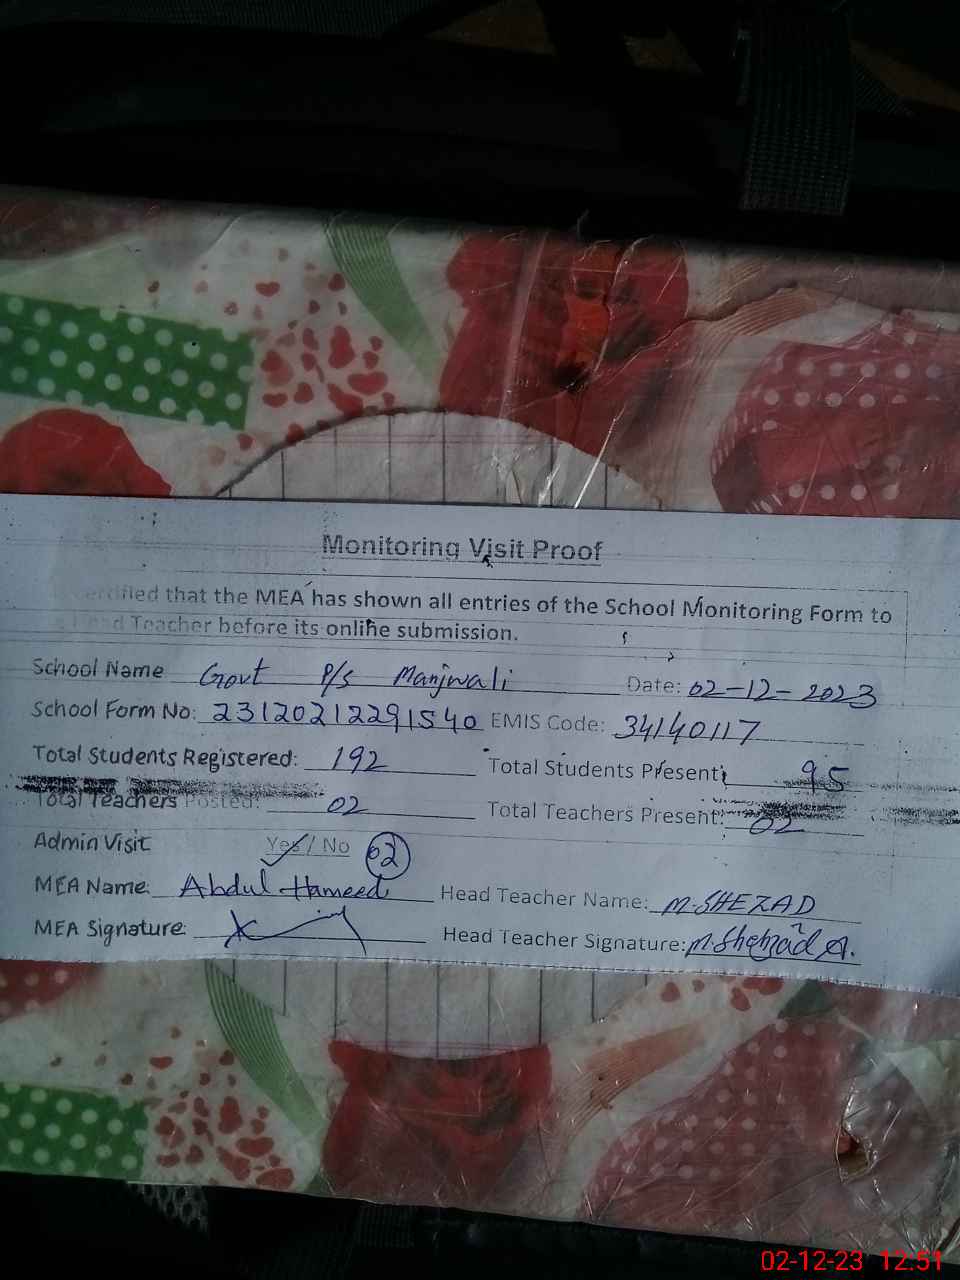 Monitoring Visit Proof
certified that the MEA has shown all entries of the School Monitoring Form to
Head Teacher before its online submission.
School Name Govt P/S Manjwali Date: 02-12-2023
School Form No: 23120212291540 EMIS Code: 34140117
Total Students Registered: 192 Total Students Present: 95
Total Teachers Posted: 02 Total Teachers Present: 02
Admin Visit Yes / No 02
MEA Name: Abdul Hameed Head Teacher Name: M.SHEZAD
MEA Signature: Head Teacher Signature: M.Shehzad A.
02-12-23 12:51